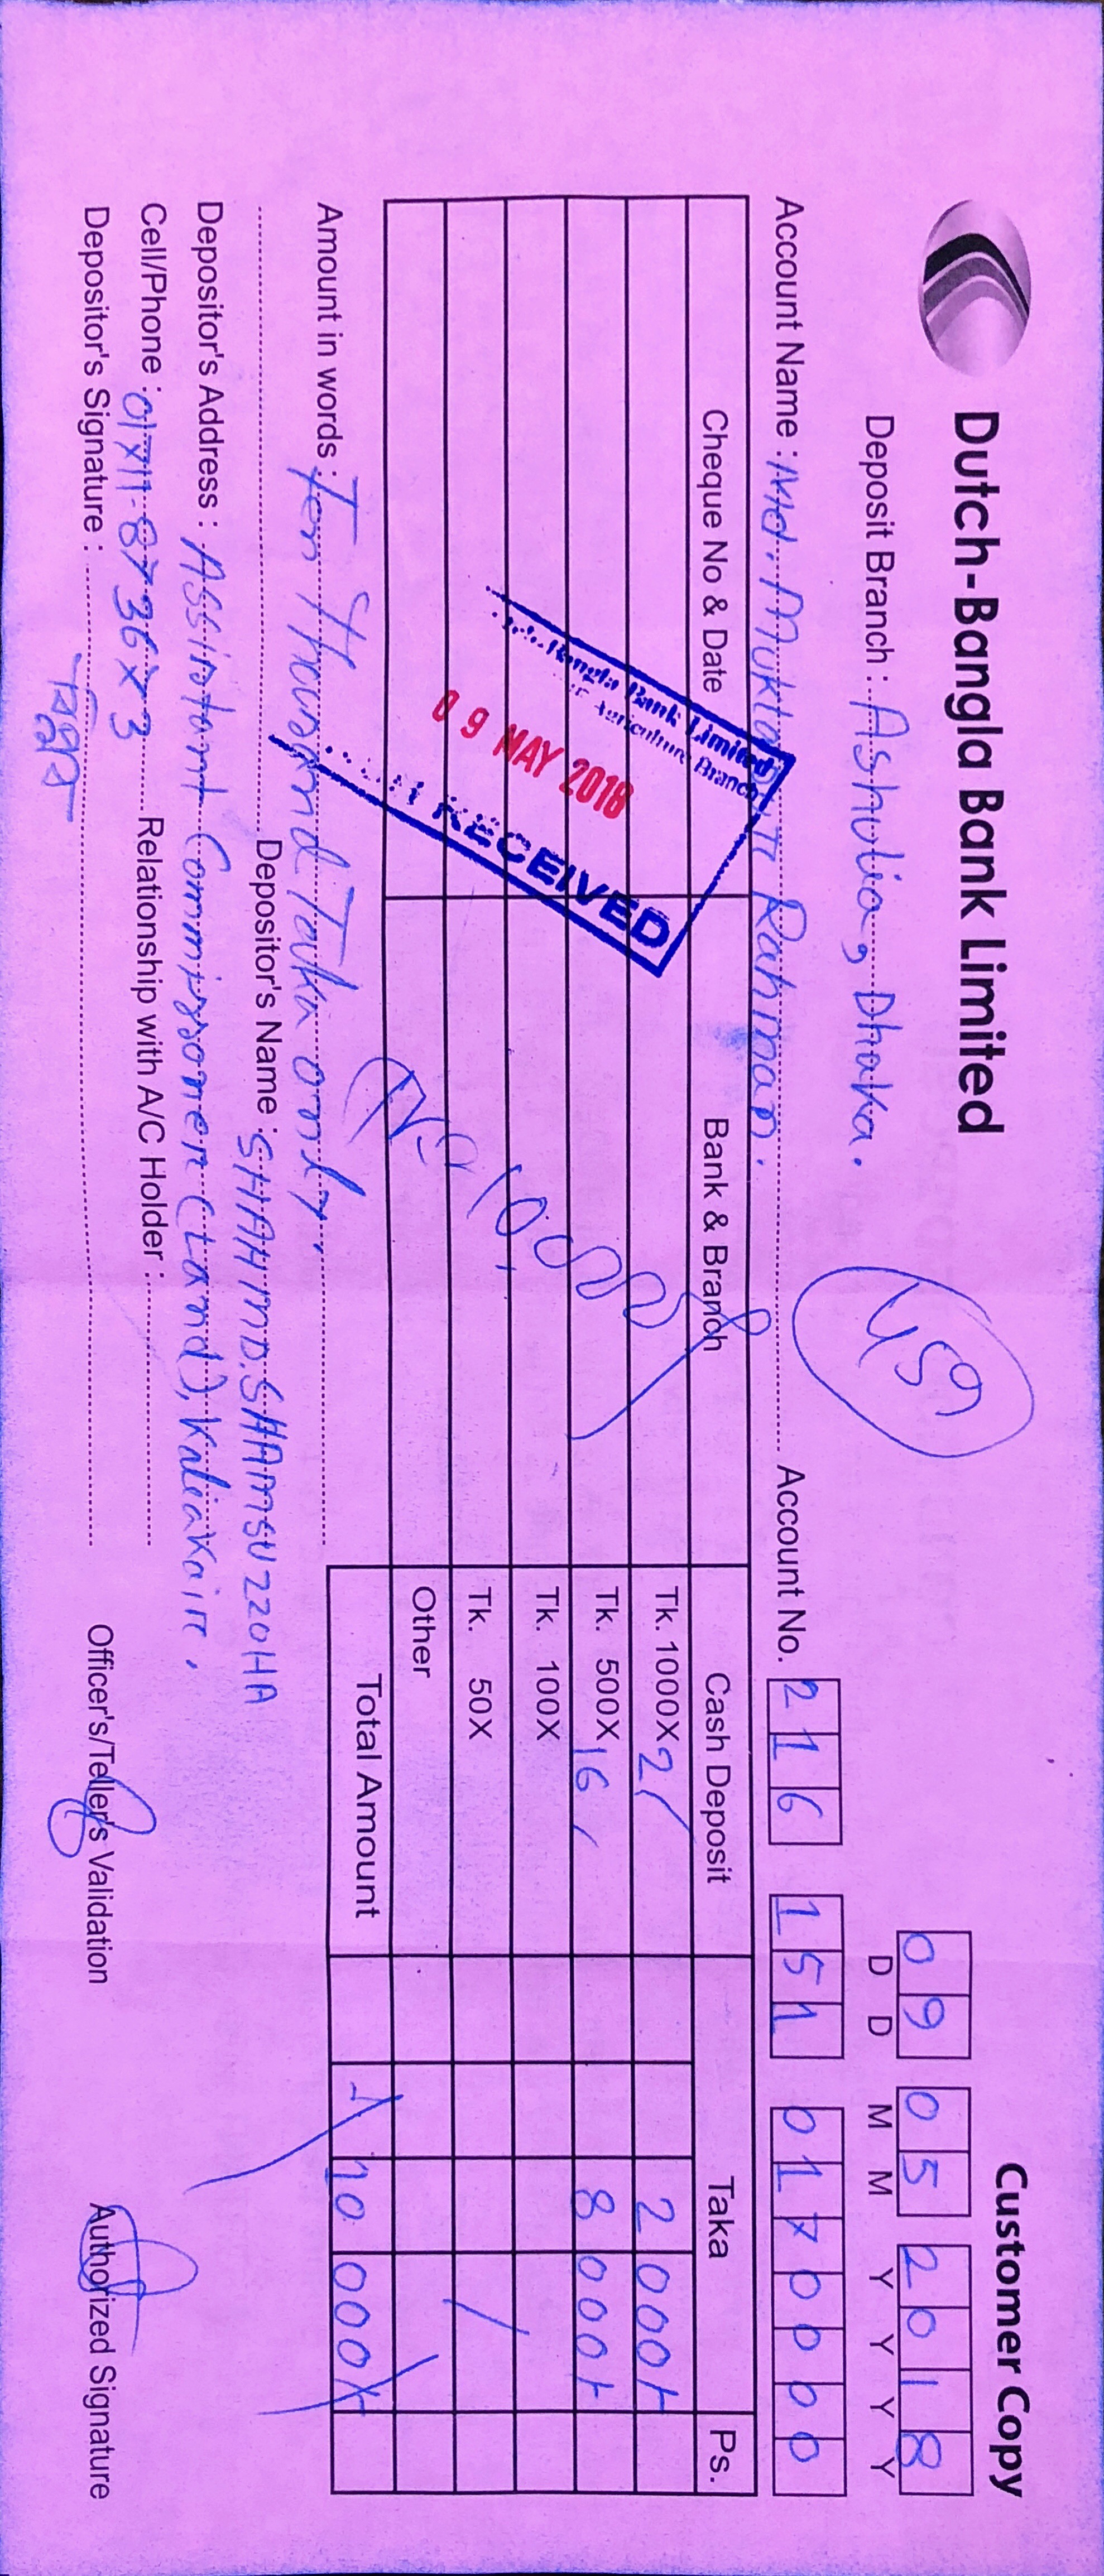 Dutch-Bangla Bank Limited
Customer Copy
Deposit Branch : Ashulia, Dhaka.
459
09 05 2018
D D M M Y Y Y Y
Account Name : Md. Muktar Rahman.
Account No. 216 151 0170000
Cheque No & Date Bank & Branch Cash Deposit Taka Ps.
Tk. 1000X 2/ 2000/-
Tk. 500X 16/ 8000/-
Tk. 100X
Tk. 50X
Other
Total Amount 10000/-
Bangla Bank Limited
Agriculture Branch
09 MAY 2018
RECEIVED
Amount in words : Ten Thousand Taka only.
Depositor's Name : SHAH MD. SHAMSUZZOHA
Depositor's Address : Assistant Commissoner (Land), Kaliakair.
Cell/Phone : 01711-873673 Relationship with A/C Holder :
Depositor's Signature : Officer's/Teller's Validation Authorized Signature